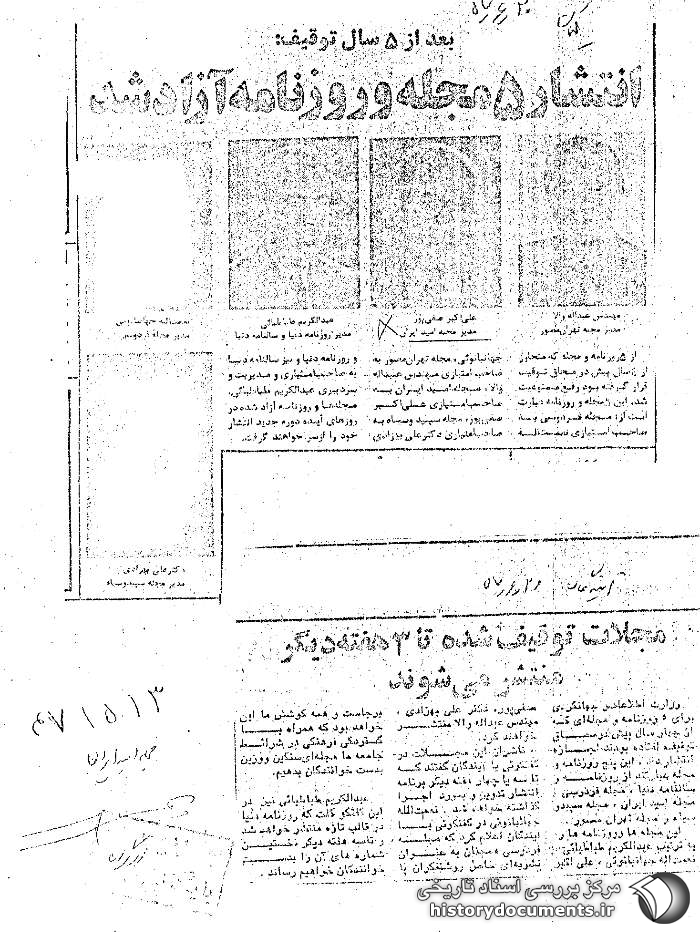 ۲۰ ر۶ ر۵۷
بعد از ۵ سال توقیف:
انتشار ۵ مجله و روزنامه آزاد شد
مهندس عبداله والا
مدیر مجله تهران‌مصور
علی‌اکبر صفی‌پور
مدیر مجله امید ایران
عبدالکریم طباطبائی
مدیر روزنامه دنیا و سالنامه دنیا
نعمت‌اله جهانبانوئی
مدیر مجله فردوسی
از ۵ روزنامه و مجله که متجاوز
از ۴ سال پیش در محاق توقیف
قرار گرفته بود رفع ممنوعیت
شد، این ۵ مجله و روزنامه عبارت
است از: مجله فردوسی به
صاحب امتیازی نعمت‌اله
جهانبانوئی، مجله تهران‌مصور به
صاحب امتیازی مهندس عبداله
والا، مجله امید ایران به
صاحب امتیازی علی‌اکبر
صفی‌پور، مجله سپید و سیاه به
صاحب‌امتیازی دکتر علی بهزادی
و روزنامه دنیا و نیز سالنامه دنیا
به صاحب‌امتیازی و مدیریت و
سردبیری عبدالکریم طباطبائی.
مجله‌ها و روزنامه آزاد شده در
روزهای آینده دوره جدید انتشار
خود را از سر خواهند گرفت.
دکتر علی بهزادی
مدیر مجله سپید و سیاه
مجلات توقیف شده تا ۳ هفته دیگر
منتشر می‌شوند
وزارت اطلاعات و جهانگردی
برای ۵ روزنامه و مجله‌ای که
از چهار سال پیش در محاق
توقیف افتاده بودند اجازه
انتشار داد. این پنج روزنامه و
مجله عبارتند از روزنامه و
سالنامه دنیا، مجله فردوسی،
مجله امید ایران، مجله سپید و
سیاه و مجله تهران مصور.
این مجله ها و روزنامه ها را
به ترتیب عبدالکریم طباطبائی،
نعمت‌اله جهانبانوئی، علی اکبر
صفی‌پور، دکتر علی بهزادی،
مهندس عبداله والا منتشر
خواهند کرد.
ناشران این مجلات در
گفتگوئی با آیندگان گفتند که
تا سه یا چهار هفته دیگر برنامه
انتشار تدوین و بمورد اجرا
گذاشته خواهد شد. نعمت‌الله
جهانبانوئی در گفتگوئی با
آیندگان اعلام کرد که مجله
فردوسی، همچنان به عنوان
نشریه‌ای خاص روشنفکران پا
برجاست و همه کوشش ما این
خواهد بود که همراه با
گستردگی فرهنگی در شرائط
جامعه ما مجله‌ای سنگین و وزین
بدست خوانندگان بدهیم.
عبدالکریم طباطبائی نیز در
این گفتگو گفت که روزنامه دنیا
در قالب تازه منتشر خواهد شد
و تا سه هفته دیگر نخستین
شماره های آن را بدست
خوانندگان خواهیم رساند.
مرکز بررسی اسناد تاریخی
historydocuments.ir